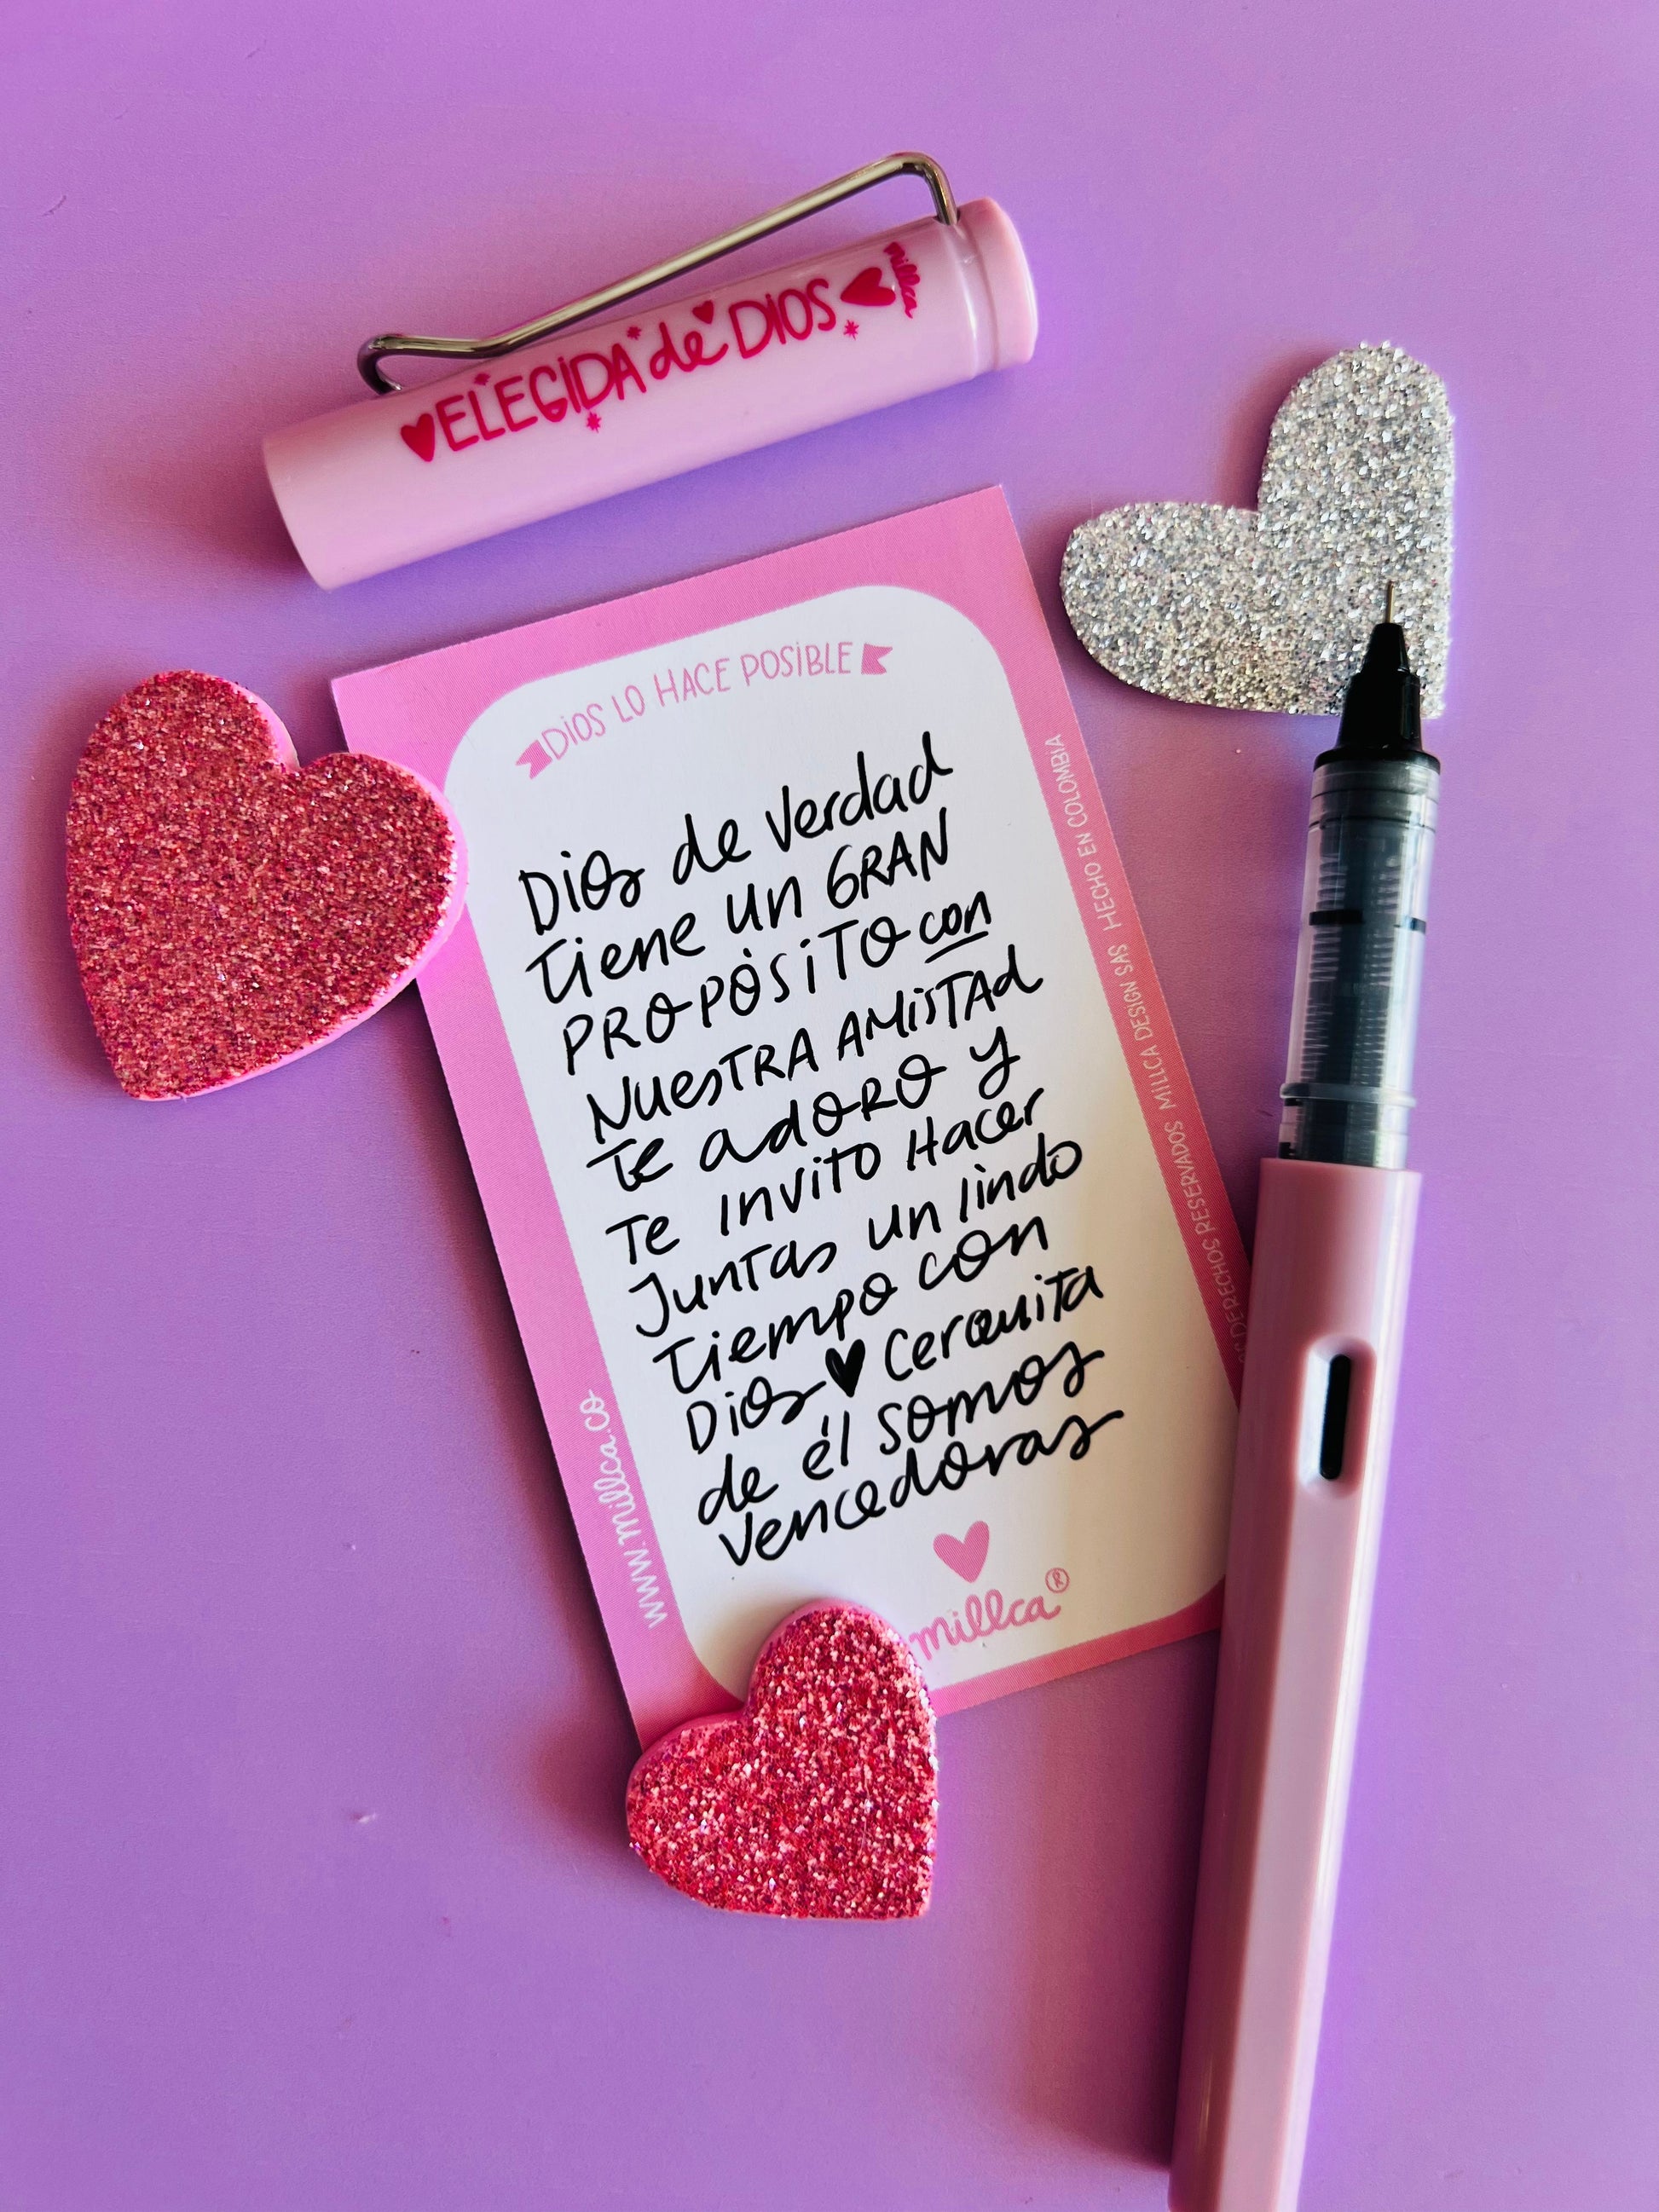 ELEGIDA de DIOS
millca
DIOS LO HACE POSIBLE
Dios de verdad
tiene un GRAN
PROPÓSITO con
NUESTRA AMISTAD
te adoro y
Te invito Hacer
Juntas un lindo
tiempo con
Dios cerquita
de él somos
vencedoras
millca®
www.millca.co
DERECHOS RESERVADOS MILLCA DESIGN SAS HECHO EN COLOMBIA